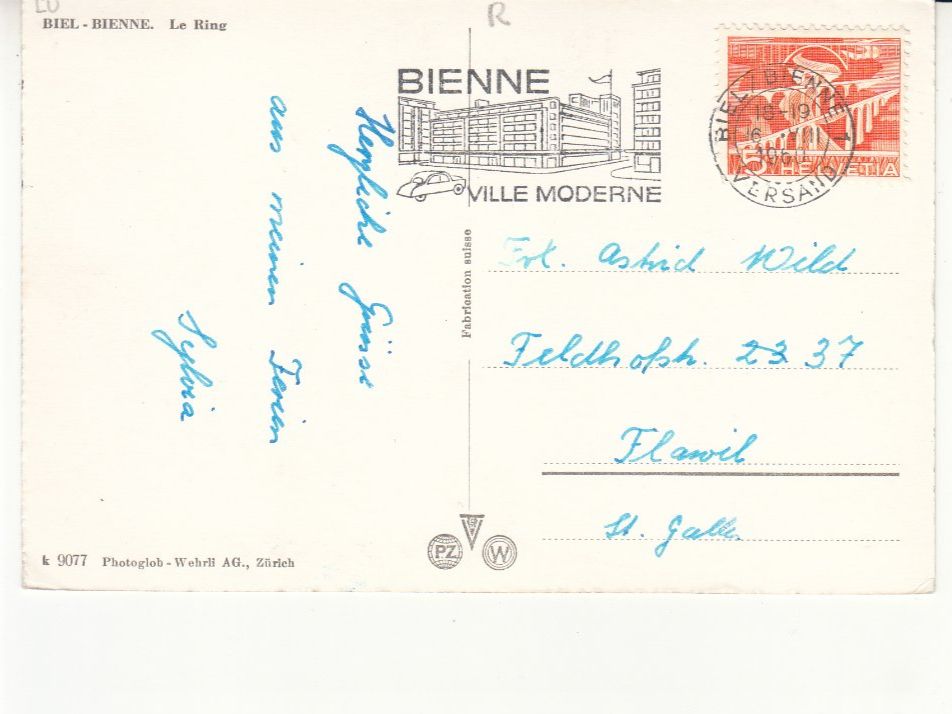 BIEL - BIENNE. Le Ring
R
BIENNE
VILLE MODERNE
BIEL | BIENNE 1
18-19
1960
VERSAND
5 HELVETIA
Herzliche Grüsse
aus meinen Ferien
Sylvia
Fabrication suisse
Frl. Astrid Wild
Feldhofstr. 23 37
Flawil
St. Gallen
PZ
W
k 9077 Photoglob - Wehrli AG., Zürich